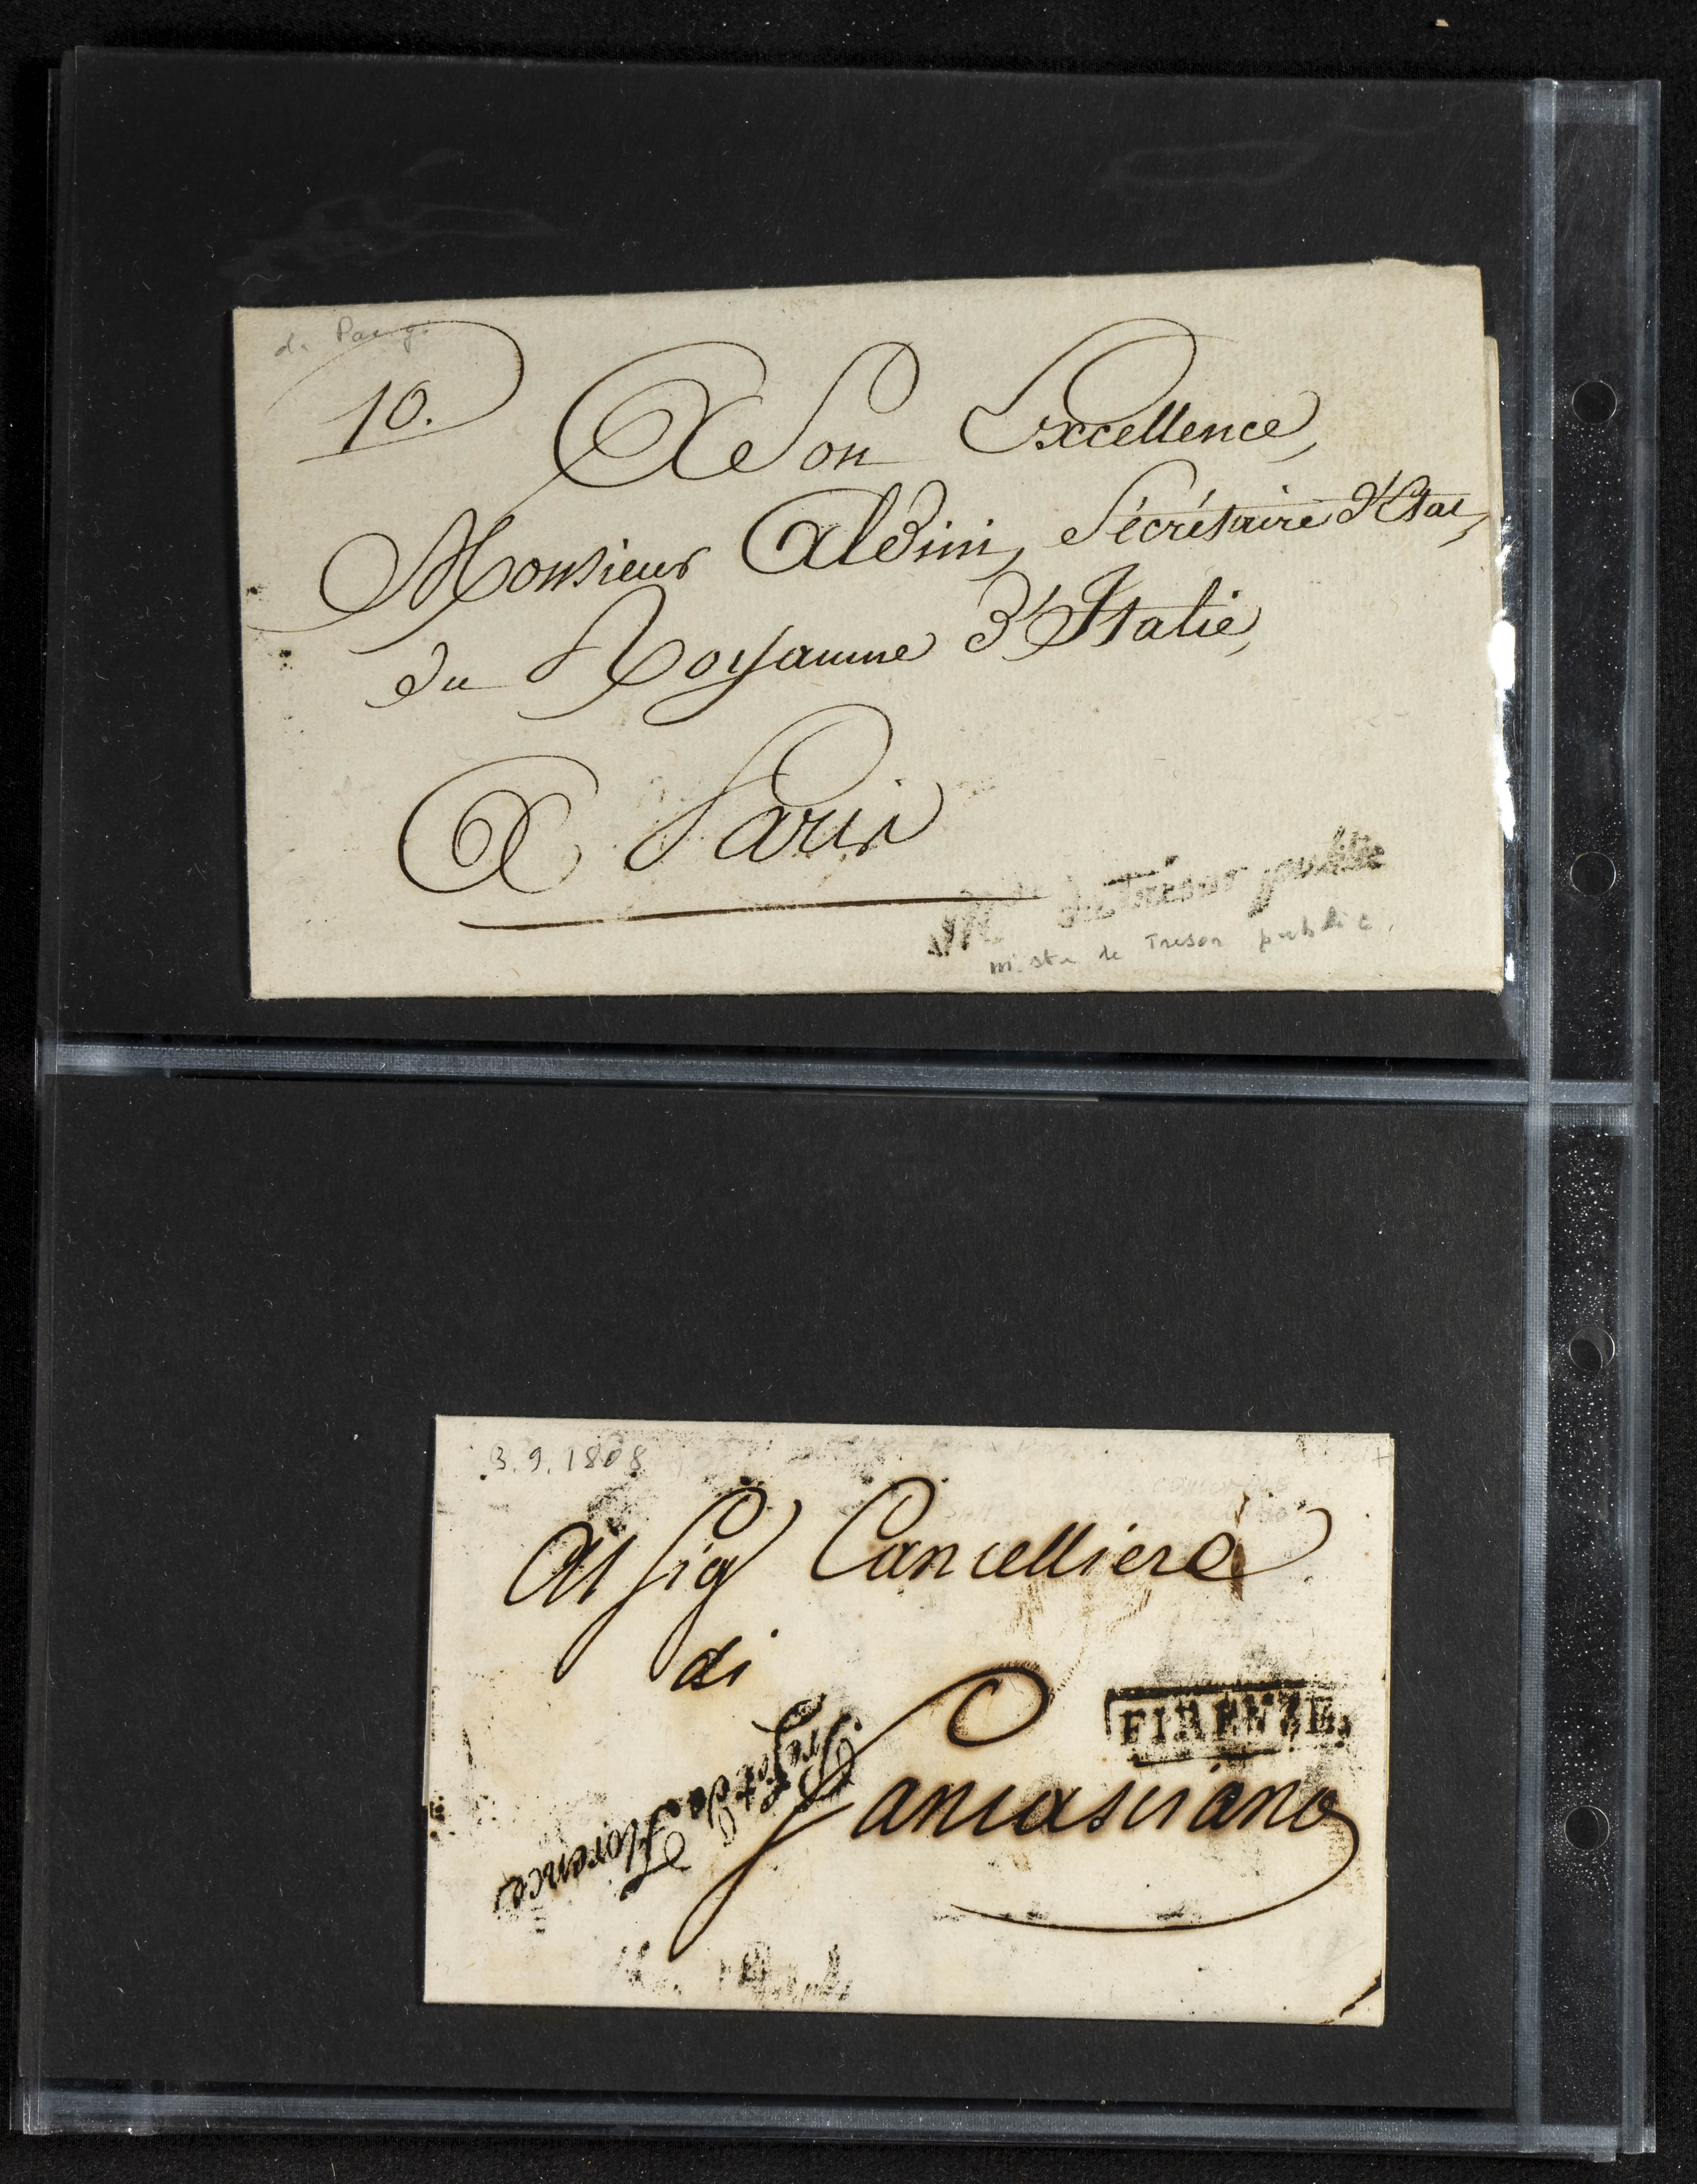 di Parigi
10.
A Son Excellence,
Monsieur Aldini, Sécrétaire d'Etat,
du Royaume d'Italie,
A Paris
Mre du Trésor public
mistr de Tresor public.
3.9.1808
Al Sig Cancelliere
di
FIRENZE.
Sancasciano
Prefet de
Florence